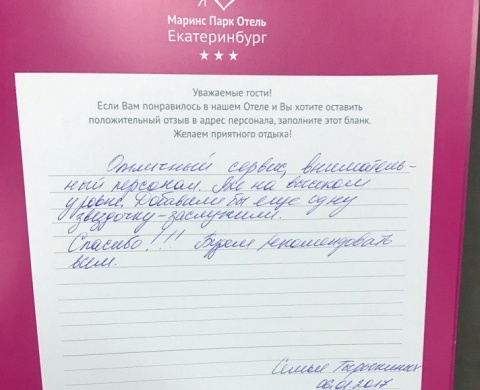 Я
Маринс Парк Отель
Екатеринбург
Уважаемые гости!
Если Вам понравилось в нашем Отеле и Вы хотите оставить
положительный отзыв в адрес персонала, заполните этот бланк.
Желаем приятного отдыха!
Отличный сервис, вниматель-
ный персонал. Все на высоком
уровне. Добавили бы еще одну
звездочку - заслужили.
Спасибо!!! Будем рекомендовать
всем.
Семья
2017